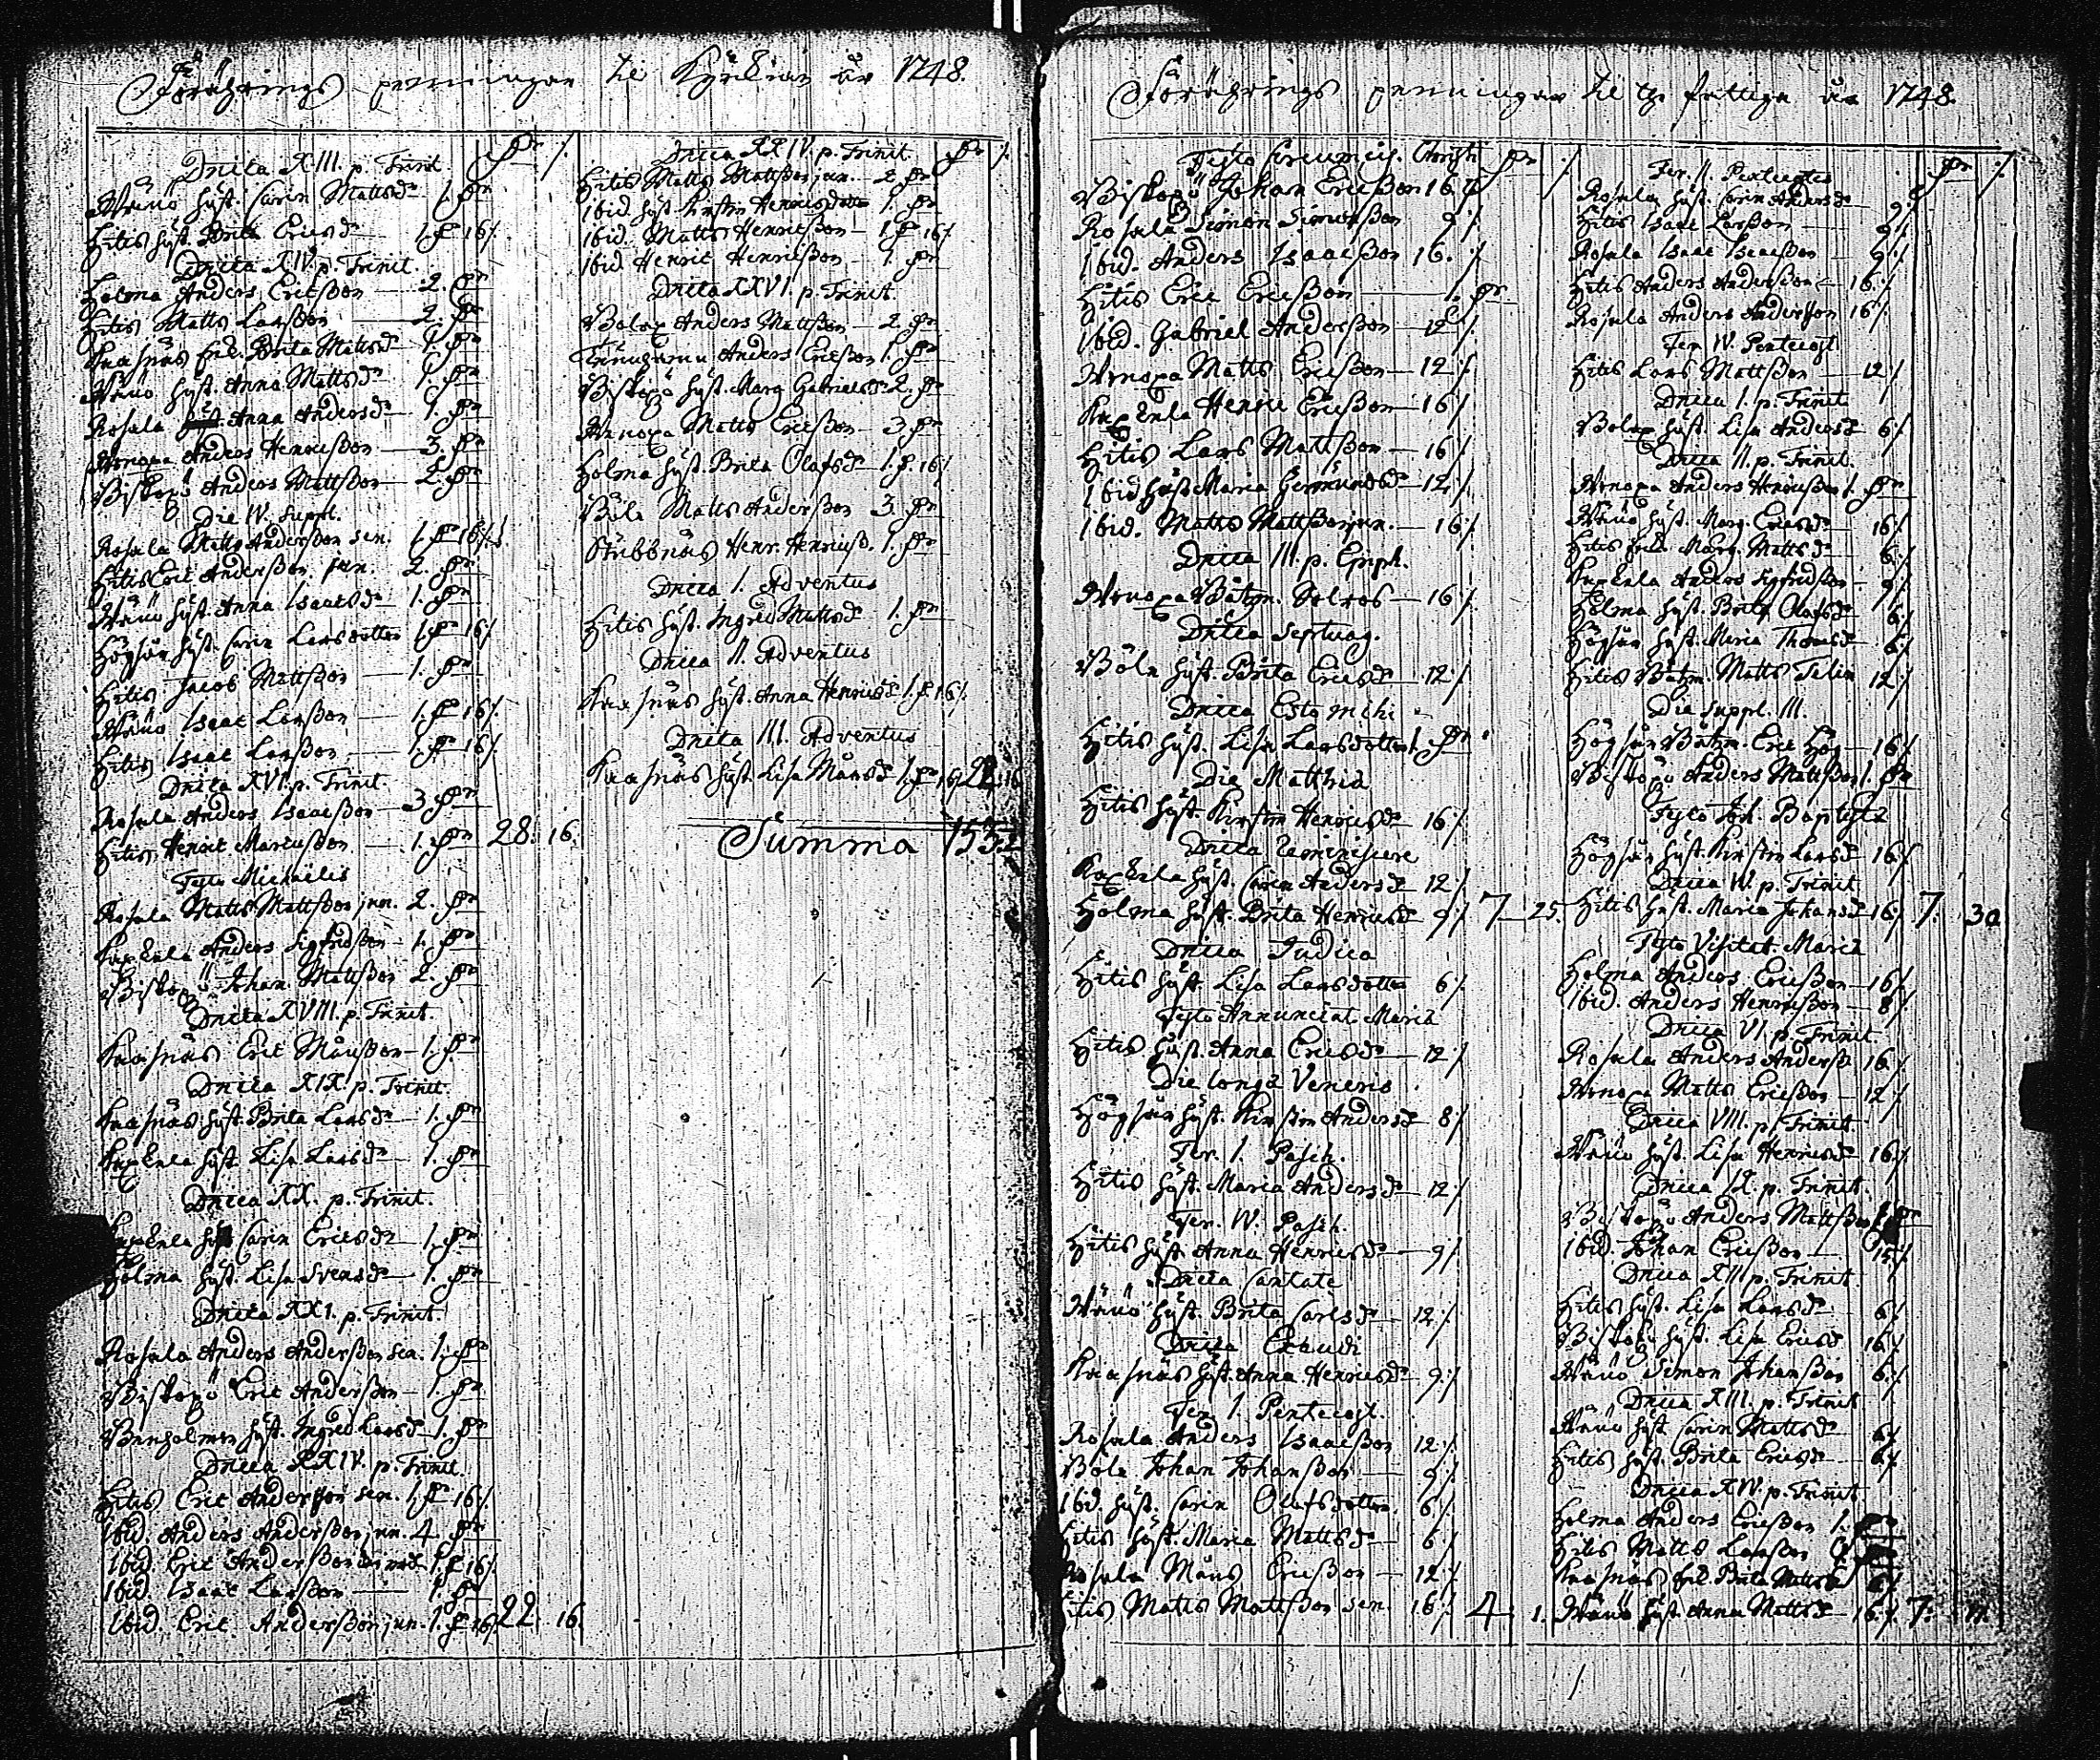 Förährings penningar til Kyrkian år 1748.
Dnica XIII. p. Trinit.
Wänö hust. Carin Mattsdr 1.
Hitis hust. Brita Ericsdr 1. 16
Dnica XIV. p. Trinit.
Holma Anders Ericßon 2.
Hitis Matts Larßon 2.
Kasnäs Enk. Brita Mattsdr 1.
Wänö hust. Anna Mattsdr 1.
Rosala Anna Andersdr 1.
Wonoxa Anders Henricßon 3.
Biskopö Anders Mattßon 2.
Die IV. Suppl.
Rosala Matts Anderßon sen. 1. 16
Hitis Eric Anderßon jun. 2.
Wänö hust. Anna Isaacsdr 1.
Högsår hust. Carin Larsdotter 1. 16
Hitis Jacob Mattßon 1.
Wänö Isaac Larßon 1. 16
Hitis Isaac Larßon 1. 16
Dnica XVI. p. Trinit.
Rosala Anders Isaacßon 3.
Hitis Henric Maricußon 1. 28. 16.
Festo Michaëlis
Rosala Matts Mattßon jun. 2.
Kxkulla Anders Sigfridßon 1.
Biskopö Johan Mattßon 2.
Dnica XVIII. p. Trinit.
Kasnäs Eric Månßon 1.
Dnica XIX. p. Trinit.
Kasnäs hust. Brita Larsdr 1.
hust. Lisa Larsdr 1.
Dnica XX. p. Trinit.
Carin Ericsdr 1.
Holma hust. Lisa Svensdr 1.
Dnica XXI. p. Trinit.
Rosala Anders Anderßon sen. 1.
Biskopö Eric Anderßon 1.
hust. Ingred Larsdr 1.
Dnica XXIV. p. Trinit.
Hitis Eric Anderßon sen. 1. 16
Ibid. Anders Anderßon jun. 4.
Ibid. Eric Anderßon 1. 16
Ibid. Isaac Larßon 1.
Ibid. Eric Anderßon jun. 1. 16 22. 16.
Dnica XXIV. p. Trinit.
Hitis Matts Mattßon jun. 2.
Ibid. hust. Kirstin Henricsdotter 1.
Ibid. Matts Henricßon 1. 16
Ibid. Henric Henricßon 1.
Dnica XXVI. p. Trinit.
Bolax Anders Mattßon 2.
Anders Ericßon 1.
Biskopö hust. Marg. Gabrielsdr 2.
Wonoxa Matts Ericßon 3.
Holma hust. Brita Olofsdr 1. 16
Böle Matts Anderßon 3.
Stubbnäs Henr. Henricß. 1.
Dnica I. Adventus
Hitis hust. Ingred Mattsdr 1.
Dnica II. Adventus
Kasnäs hust. Anna Henricsdr 1. 16
Dnica III. Adventus
Kasnäs hust. Lisa Månsdr 1. 16
Summa 153.
Förährings penningar til the fattiga år 1748.
Festo Circumcis. Christi
Biskopö Johan Ericßon 16
Rosala Simon Simonßon 9
Ibid. Anders Isaacßon 16.
Hitis Eric Ericßon 1.
Ibid. Gabriel Anderßon 12
Wonoxa Matts Ericßon 12
Henric Ericßon 16
Hitis Lars Mattßon 16
Ibid. hust. Maria Germundsdr 12
Ibid. Matts Mattßon jun. 16
Dnica III. p. Epiph.
Wonoxa Båtzm. 16
Dnica Septuag.
Böle hust. Brita Ericsdr 12
Dnica Esto mihi
Hitis hust. Lisa Larsdotter 1.
Die Matthiä
Hitis hust. Kirstin Henricsdr 16
Dnica Reminiscere
hust. Carin Andersdr 12
Holma hust. Brita Henricsdr 9 7 25.
Dnica Judica
Hitis hust. Lisa Larsdotter 6
Festo Annunciat. Mariä
Hitis hust. Anna Ericsdr 12
Die longa Veneris
Högsår hust. Kirstin Andersdr 8
Fer. I. Pasch.
Hitis hust. Maria Andersdr 12
Fer. IV. Pasch.
Hitis hust. Anna Henricsdr 9
Dnica Cantate
Wänö hust. Brita Carlsdr 12
Dnica Exaudi
Kasnäs hust. Anna Henricsdr 9
Fer. I. Pentecost.
Rosala Anders Isaacßon 12
Böle Johan Johanßon 9
Ibid. hust. Carin Olofsdotter 6
Hitis hust. Maria Mattsdr 6
Rosala Måns Ericßon 12
Hitis Matts Mattßon sen. 16 4 1.
Fer. II. Pentecostes
Rosala hust. Carin Andersdr 9
Hitis Isaac Larßon 9
Rosala Isaac Isaacßon 9
Hitis Anders Anderßon 16
Rosala Anders Anderßon 16
Fer. IV. Pentecost.
Hitis Lars Mattßon 12
Dnica I. p. Trinit.
Bolax hust. Lisa Andersdr 6
Dnica II. p. Trinit.
Wonoxa Anders Henricßon 1.
Wänö hust. Marg. Ericsdr 16
Hitis Enk. Marg. Mattsdr 6
Anders Sigfridßon 9
Holma hust. Brita Olofsdr 6
Högsår hust. Maria Thomsdr 6
Hitis Båtzm. Matts Talin 12
Die Suppl. III.
Högsår Båtzm. Eric Hög 16
Biskopö Anders Mattßon 1.
Festo Joh. Baptistä
Högsår hust. Kirstin Larsdr 16
Dnica IV. p. Trinit.
Hitis hust. Maria Johansdr 16 7. 30
Festo Visitat. Mariä
Holma Anders Ericßon 16
Ibid. Anders Henricßon 8
Dnica VI. p. Trinit.
Rosala Anders Anderß 16
Wonoxa Matts Ericßon 12
Dnica VIII. p. Trinit.
Wänö hust. Lisa Henricsdr 16
Dnica IX. p. Trinit.
Biskopö Anders Mattßon
Ibid. Johan Ericßon
Dnica XII. p. Trinit.
Hitis hust. Lisa Larsdr 6
Biskopö hust. Lisa Ericsd 16
Wänö Simon Johanßon 6
Dnica XIII. p. Trinit.
Wänö hust. Carin Mattsdr 6
Hitis hust. Brita Ericsdr 6
Dnica XIV. p. Trinit.
Holma Anders Ericßon 1.
Hitis Matts Larßon
Kasnäs Enk. Brita Mattsdr 6
Wänö hust. Anna Mattsdr 16 7.